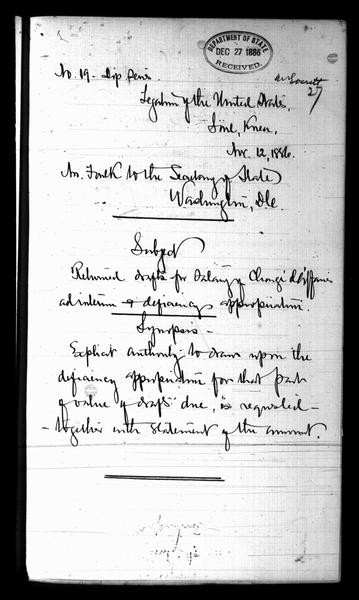 DEPARTMENT OF STATE
DEC 27 1886
RECEIVED.
27
No. 19 - Dip. Series
Legation of the United States,
Söul, Korea,
Nov. 12, 1886.
Mr. Foulk to the Secretary of State
Washington, D.C.
Subject
Returned drafts for Salary of Chargé d'Affaires
ad interim & deficiency appropriation.
Synopsis -
Explicit authority to draw upon the
deficiency appropriation for that part
of value of drafts due, is requested -
- together with statement of the amount.